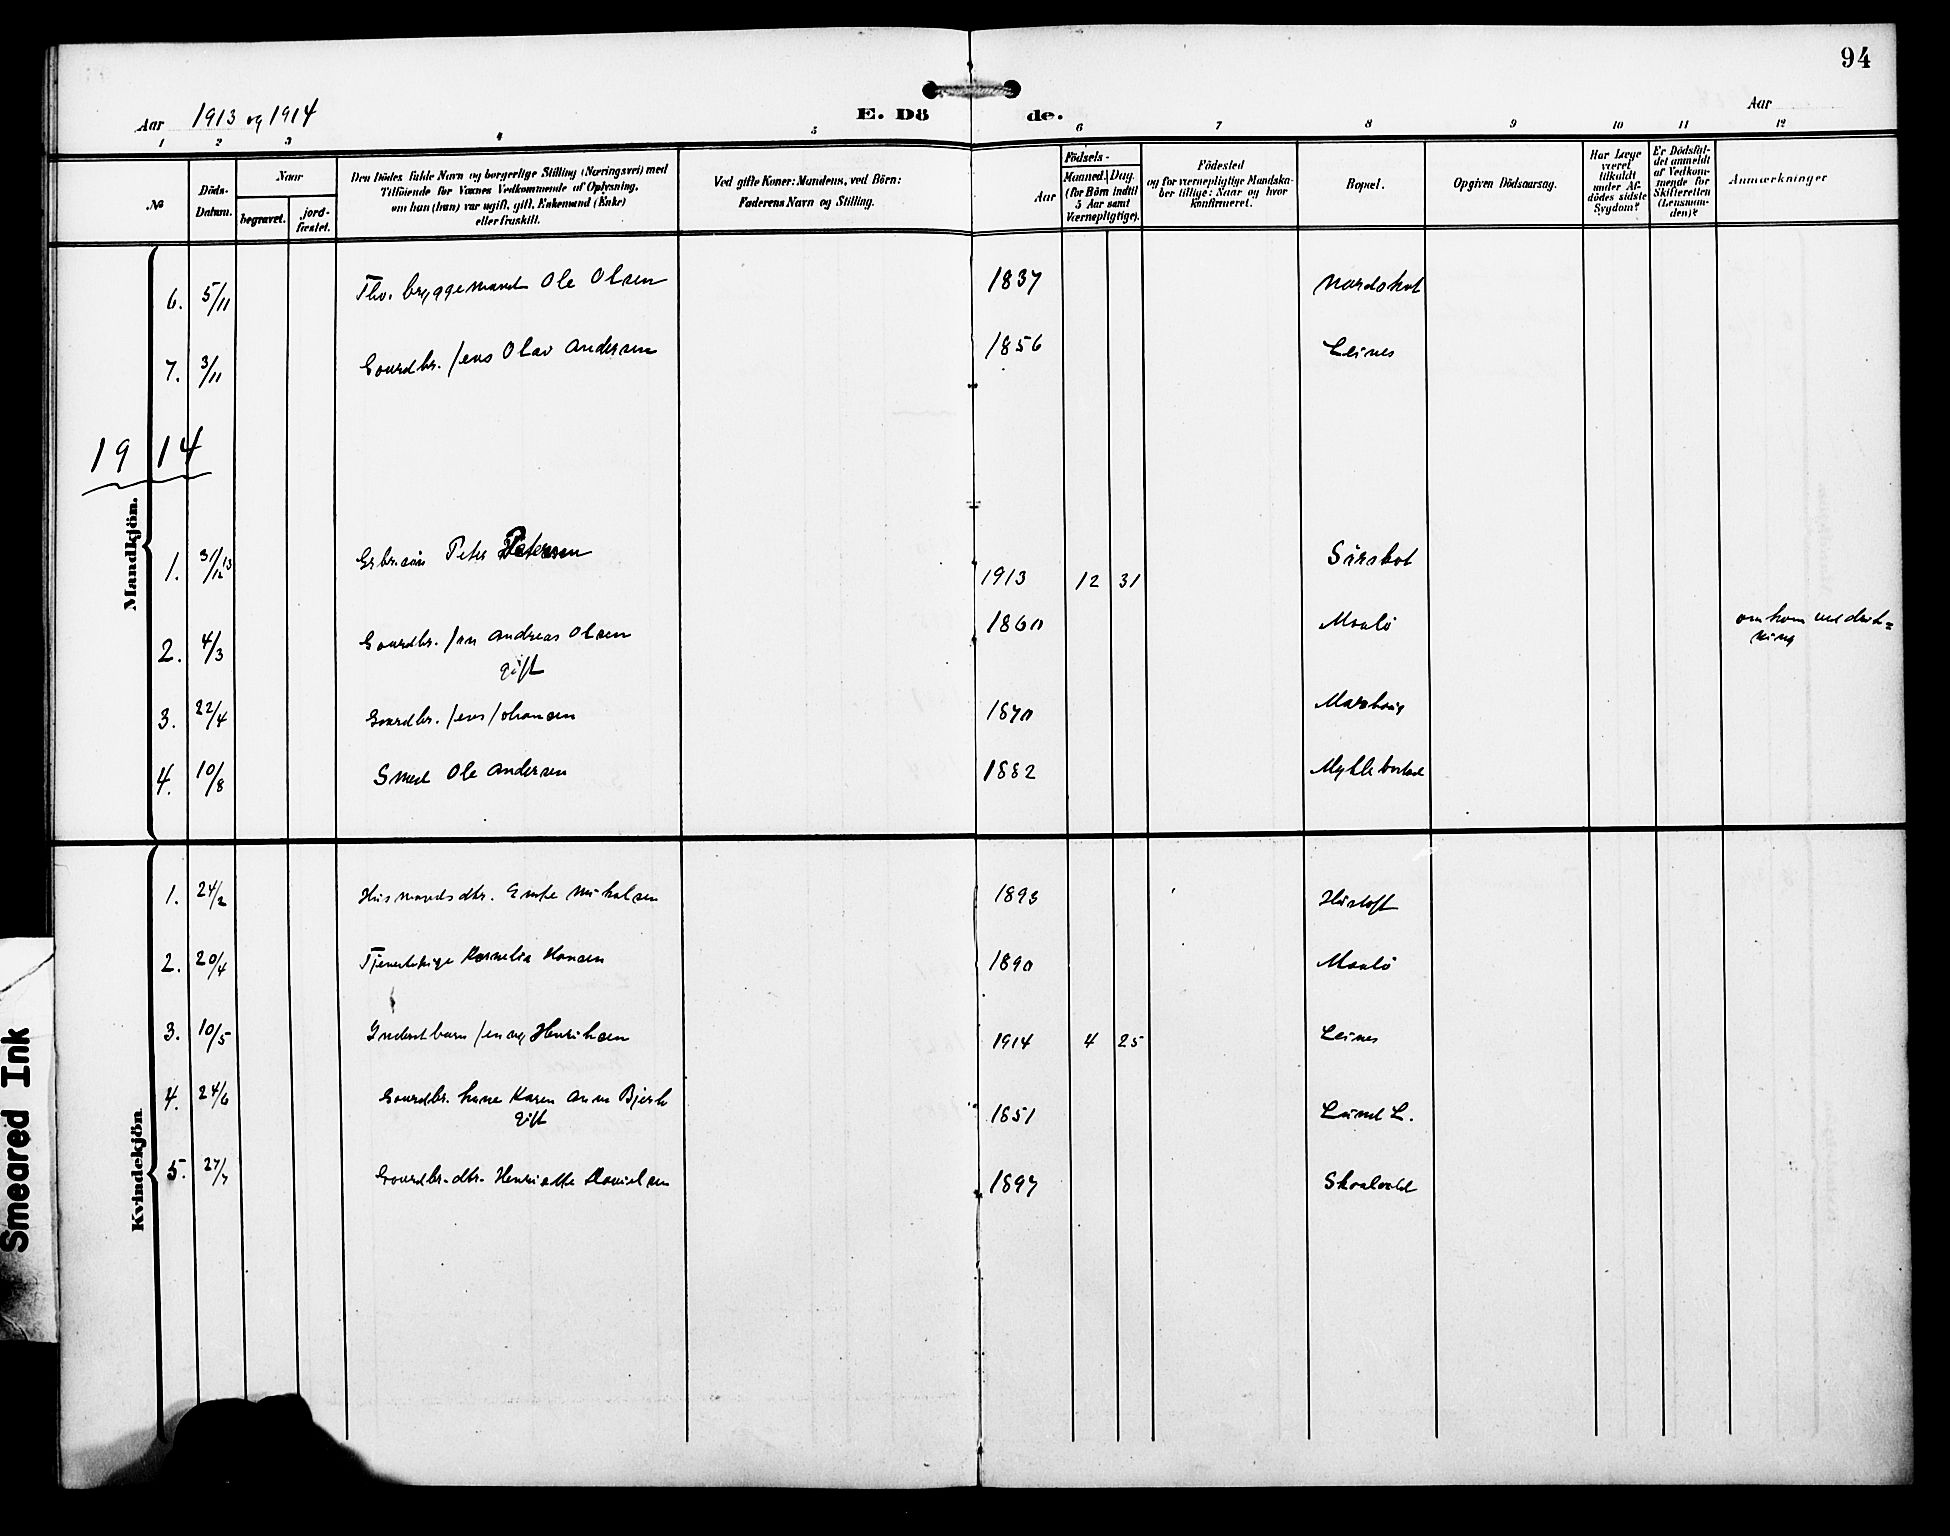 94
Aar 1913 og 1914
E. Dö de.
Aar
1 2 3 4 5 6 7 8 9 10 11 12
No
Döds-
Datum.
Naar
begravet.
jord-
fæstet.
Den Dödes fulde Navn og borgerlige Stilling (Næringsvei) med
Tilföiende for Voxnes Vedkommende af Oplysning,
om han (hun) var ugift, gift, Enkemand (Enke)
eller fraskilt.
Ved gifte Koner: Mandens, ved Börn:
Faderens Navn og Stilling.
Aar
Födsels-
Maaned. Dag.
(for Börn indtil
5 Aar samt
Værnepligtige).
Födested
og for værnepligtige Mandska-
ber tillige: Naar og hvor
konfirmeret.
Bopæl.
Opgiven Dödsaarsag.
Har Læge
været
tilkaldt
under Af-
dödes sidste
Sygdom?
Er Dödsfal-
det anmeldt
af Vedkom-
mende for
Skifteretten
(Lensman-
den)?
Anmærkninger
Mandkjön.
6. 5/11 Ole Olsen 1837 Nordskot
7. 3/11 Gaardbr. Jens Olav Andersen 1856 Leines
1914
1. 31/12 13 Peter Petersen 1913 12 31 Sörskot
2. 4/3 Gaardbr. Jon Andreas Olsen 1860 Maalö omkom ved druk=
gift ning
3. 22/4 Gaardbr. Jens Johansen 1870
4. 10/8 Smed Ole Andersen 1882 Myklebostad
Kvindekjön.
1. 24/2 Husmandsdtr. 1893
2. 20/4 Tjenestepige Kornelia Hansen 1890 Maalö
3. 10/5 Inderstbarn Jenny Henriksen 1914 4 25 Leines
4. 24/6 Gaardbr. kone Karen Anna Bjerk 1851 Lund L.
gift
5. 27/7 Gaardbr. dtr. Henriette Danielsen 1897 Skaalvold
Smeared Ink